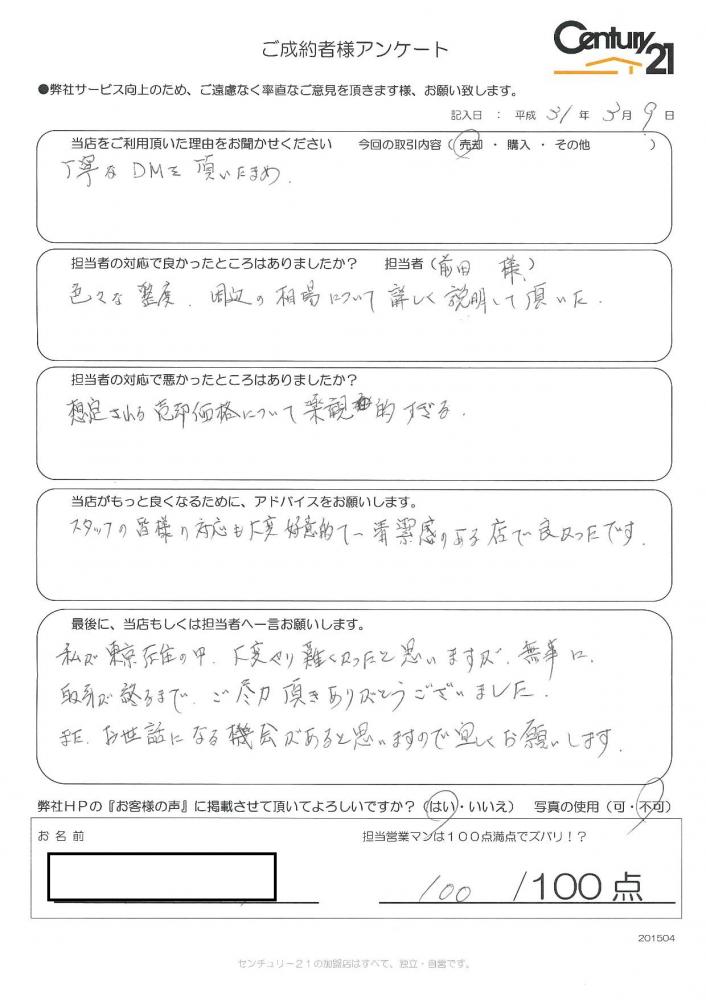 Century 21
ご成約者様アンケート
●弊社サービス向上のため、ご遠慮なく率直なご意見を頂きます様、お願い致します。
記入日 : 平成 31 年 3 月 9 日
当店をご利用頂いた理由をお聞かせください 今回の取引内容 ( 売却 ・ 購入 ・ その他 )
丁寧な DMを 頂いたため.
担当者の対応で良かったところはありましたか? 担当者 ( 前田 様 )
色々な 制度、周辺の 相場について 詳しく 説明して 頂いた.
担当者の対応で悪かったところはありましたか?
想定される 売却価格について 楽観的すぎる.
当店がもっと良くなるために、アドバイスをお願いします。
スタッフの 皆様の 対応も 大変 好意的で 清潔感のある 店で 良かったです.
最後に、当店もしくは担当者へ一言お願いします。
私が 東京在住の中、大変やり難くかったと思いますが、無事に、
取引が 終るまで、ご尽力 頂き ありがとうございました.
また、お世話になる 機会があると思いますので 宜しくお願いします.
弊社HPの『お客様の声』に掲載させて頂いてよろしいですか? (はい・いいえ) 写真の使用 (可・不可)
お名前 担当営業マンは100点満点でズバリ!?
100 /100点
201504
センチュリー21の加盟店はすべて、独立・自営です。